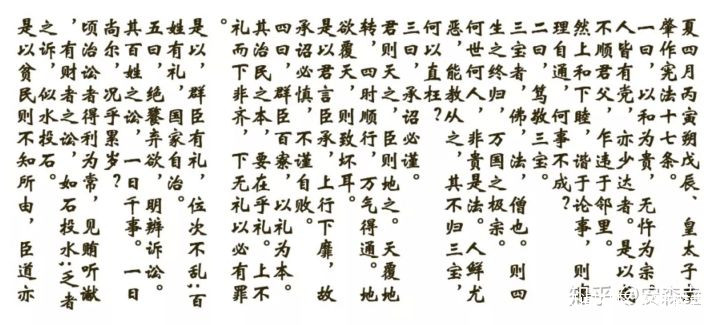 夏四月丙寅朔戊辰、皇太子亲
肇作宪法十七条。
一曰,以和为贵,无忤为宗。
人皆有党,亦少达者。是以
不顺君父,乍违于邻里。
然上和下睦,谐于论事,则
理自通,何事不成?
二曰,笃敬三宝。
三宝者,佛,法,僧也。则四
生之终归,万国之极宗。
何世何人,非贵是法。人鲜尤
恶,能教从之,其不归三宝,
何以直枉?
三曰,承诏必谨。
君则天之,臣则地之。天覆地
转,四时顺行,万气得通。地
欲覆天,则致坏耳。
是以君言臣承,上行下靡,故
承诏必慎,不谨自败。
四曰,群臣百寮,以礼为本。
其治民之本,要在乎礼。上不
礼而下非齐,下无礼以必有罪
。
是以,群臣有礼,位次不乱:百
姓有礼,国家自治。
五曰,绝餮弃欲,明辨诉讼。
其百姓之讼,一日千事。一日
尚尔,况乎累岁?
顷治讼者得利为常,见贿听谳
,有财者之讼,如石投水:乏者
之诉,似水投石。
是以贫民则不知所由,臣道亦
知乎 @安森垚